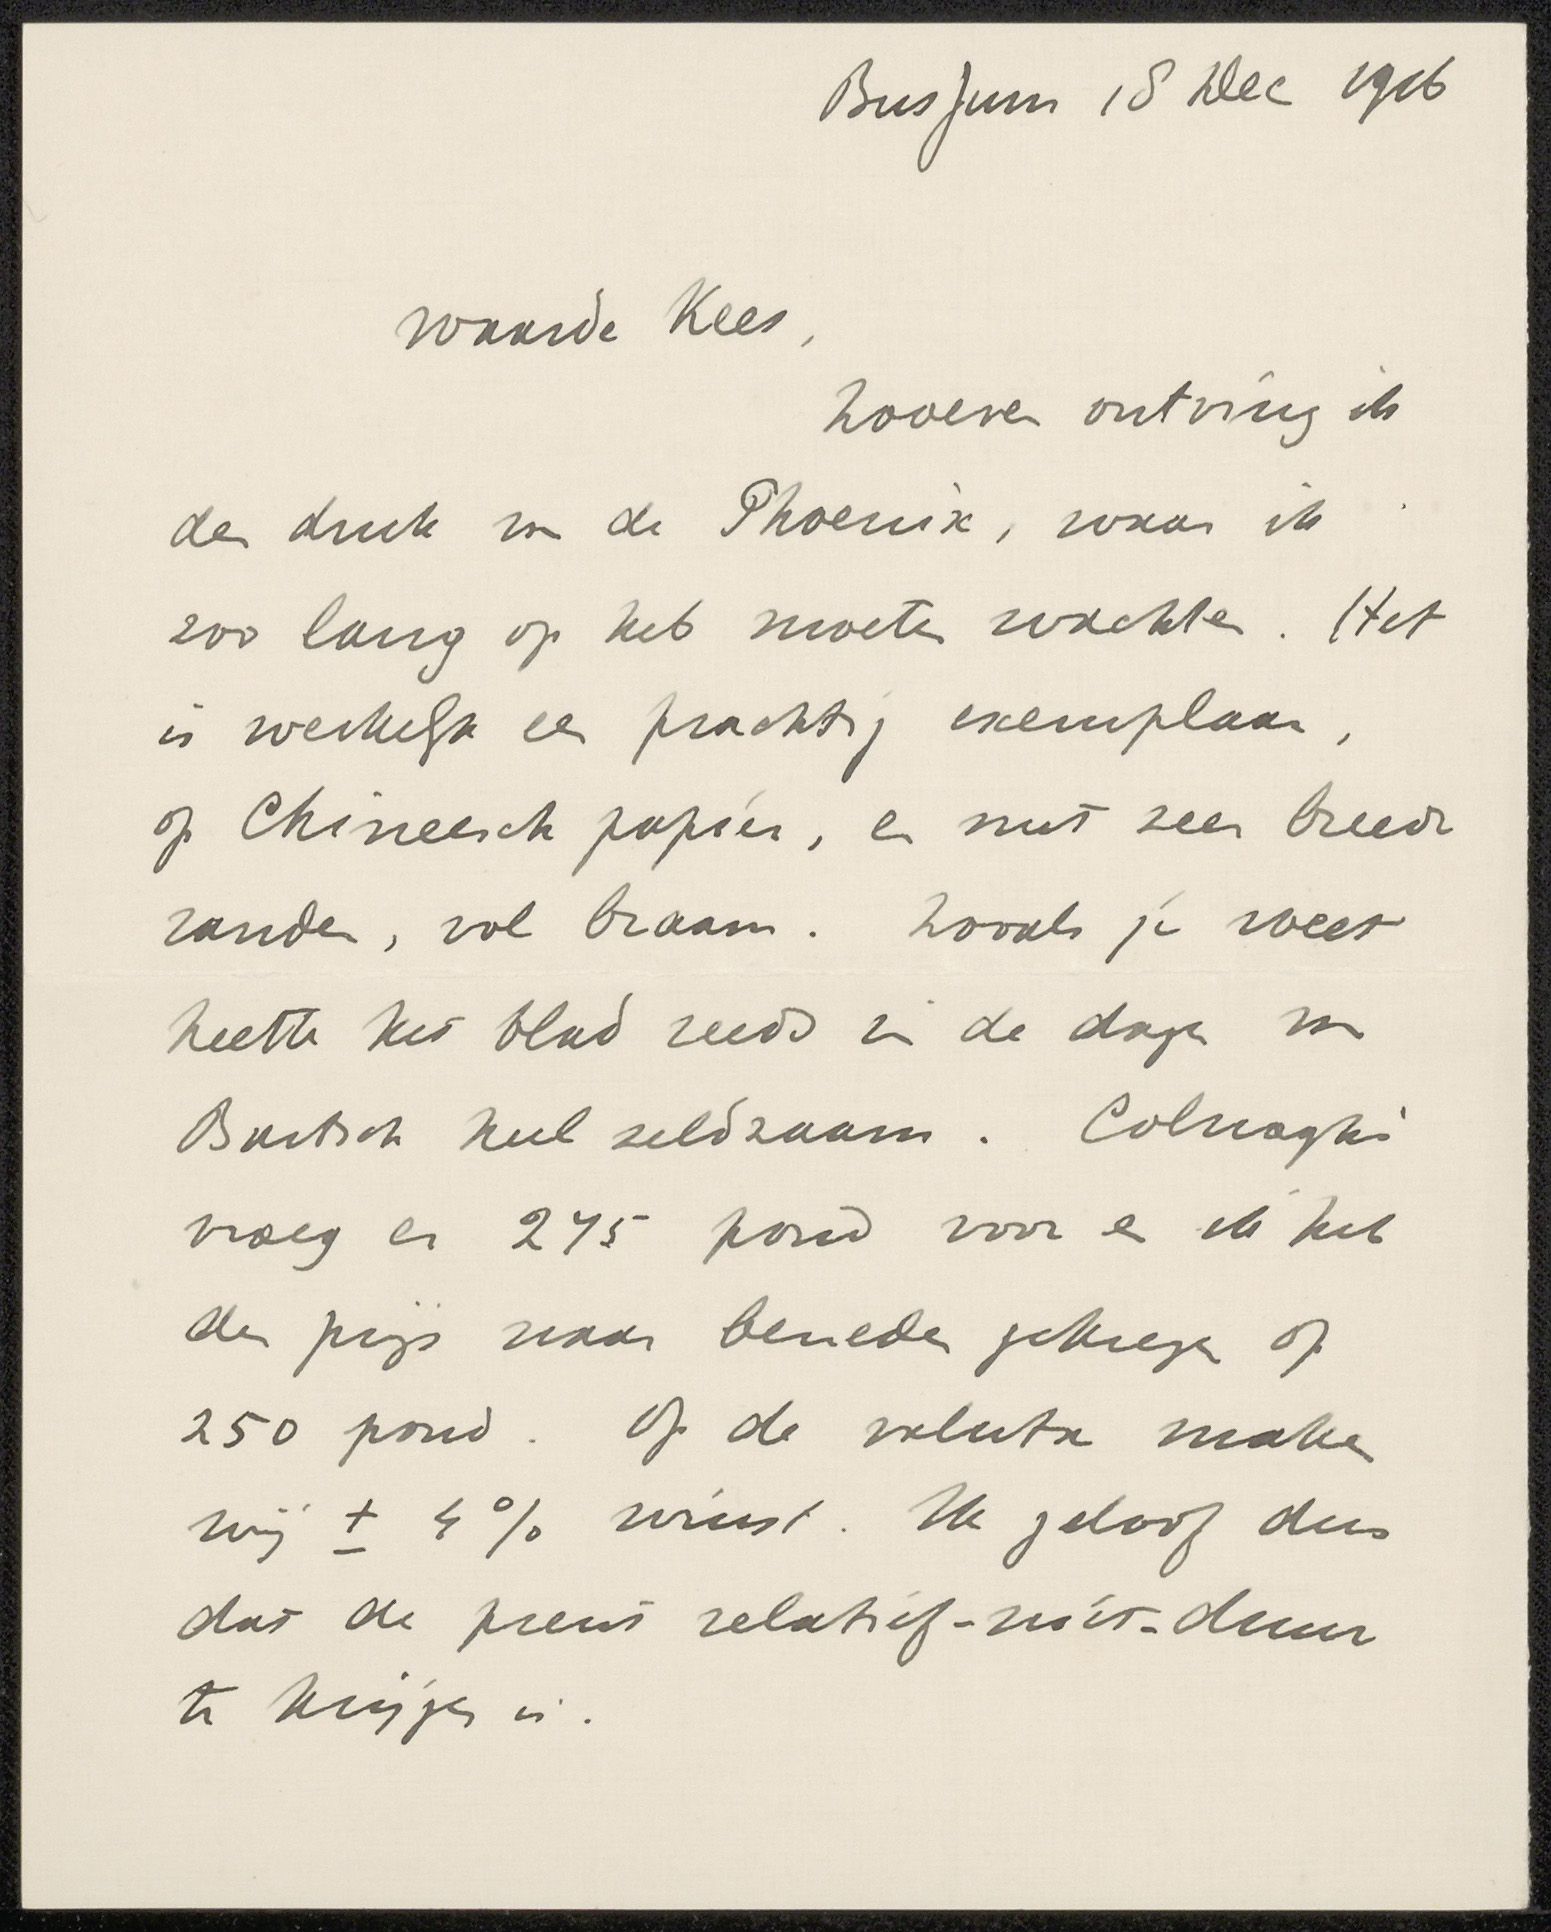 Bussum 18 Dec 1916
Waarde Kees,
Zooeven ontving ik
den druk van de Phoenix, waar ik
zoo lang op heb moeten wachten. Het
is werkelijk een prachtig exemplaar,
op Chineesch papier, en met zeer breede
randen, vol braam. Zooals je weet
heette het blad reeds in de dagen van
Bartsch heel zeldzaam. Colnaghi
vroeg er 275 pond voor en ik heb
den prijs naar beneden gekregen op
250 pond. Op de valuta maken
wij ± 4% winst. Ik geloof dus
dat de prent relatief-niet-duur
te krijgen is.